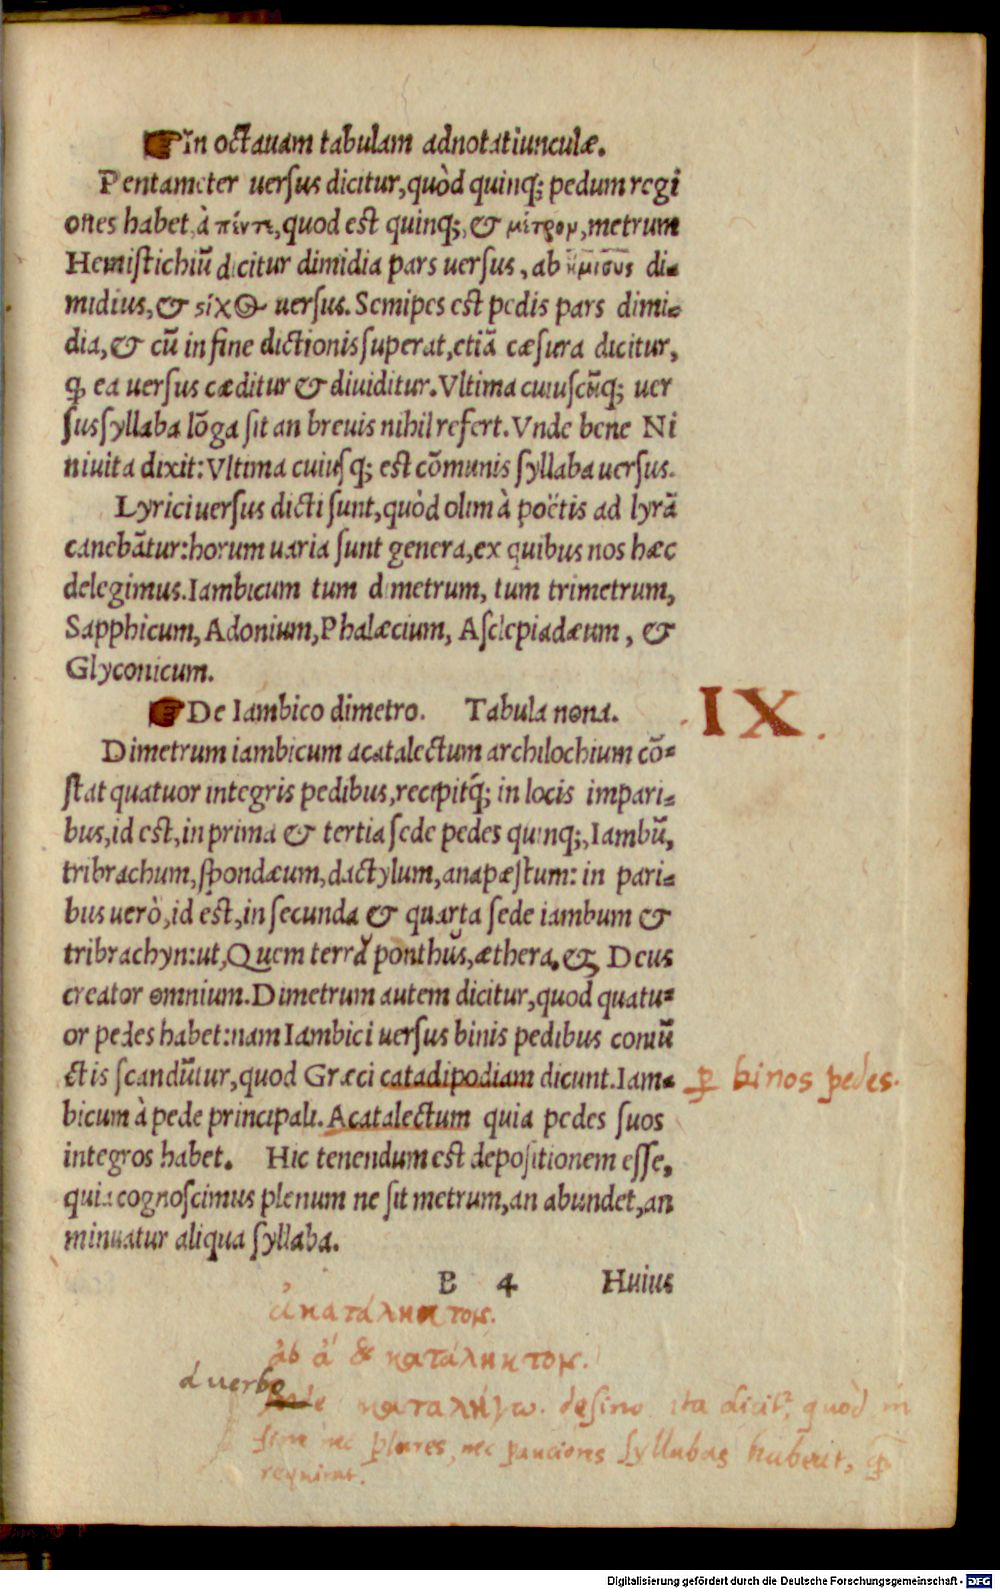 ☛In octauam tabulam adnotatiunculæ.
Pentameter uersus dicitur, quòd quinq; pedum regi
ones habet, à πέντε, quod est quinq;, & μέτρον, metrum
Hemistichiũ dicitur dimidia pars uersus, ab ἥμισυς di-
midius, & ςίχος uersus. Semipes est pedis pars dimi-
dia, & cũ in fine dictionis superat, etiã cæsura dicitur,
ꝙ ea uersus cæditur & diuiditur. Vltima cuiuscũq; uer
sus syllaba lõga sit an breuis nihil refert. Vnde bene Ni
niuita dixit: Vltima cuiusq; est cõmunis syllaba uersus.
Lyrici uersus dicti sunt, quòd olim à poëtis ad lyrã
canebãtur: horum uaria sunt genera, ex quibus nos hæc
delegimus. Iambicum tum dimetrum, tum trimetrum,
Sapphicum, Adonium, Phalæcium, Asclepiadæum, &
Glyconicum.
☛De Iambico dimetro. Tabula nona.
IX.
Dimetrum iambicum acatalectum archilochium cõ-
stat quatuor integris pedibus, recipitq́; in locis impari-
bus, id est, in prima & tertia sede pedes quinq;, Iambũ,
tribrachum, spondæum, dactylum, anapæstum: in pari-
bus uerò, id est, in secunda & quarta sede iambum &
tribrachyn: ut, Quem terra ponthus, æthera. & Deus
creator omnium. Dimetrum autem dicitur, quod quatu-
or pedes habet: nam Iambici uersus binis pedibus coniũ
ctis scandũtur, quod Græci catadipodiam dicunt. Iam-
ꝑ binos pedes.
bicum à pede principali. Acatalectum quia pedes suos
integros habet. Hic tenendum est depositionem esse,
quia cognoscimus plenum ne sit metrum, an abundet, an
minuatur aliqua syllaba.
B 4 Huius
ἀκατάληκτον.
ab ἀ & κατάληκτον.
à uerbo
καταλήγω. desino ita dicitᷣ, quòd in
fine nec plures, nec pauciores syllabas habeat, ꝙ
requirat.